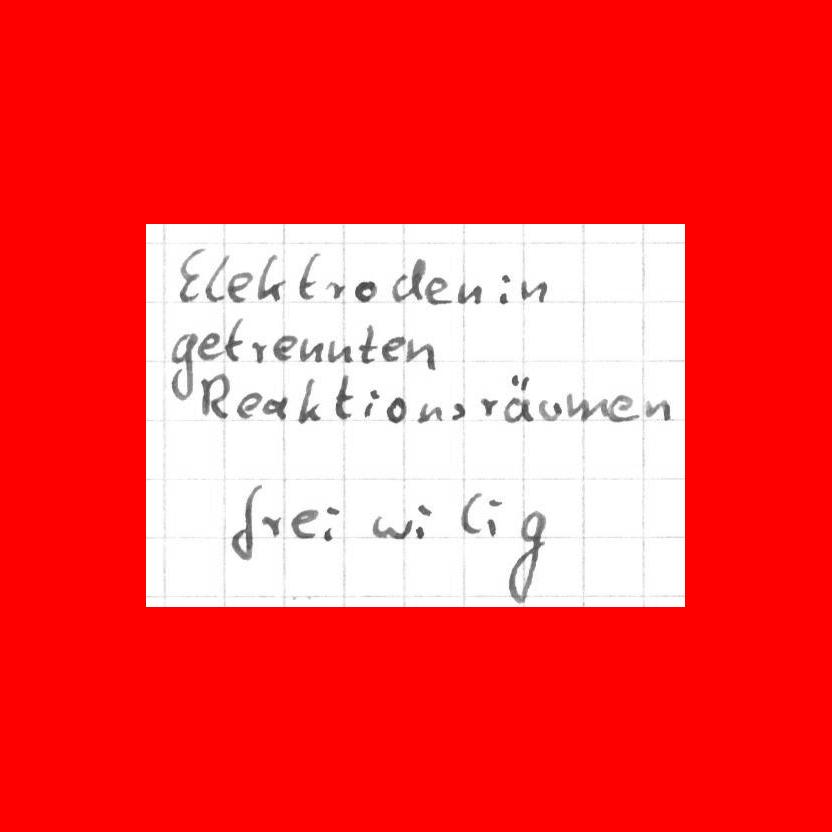 Elektroden in
getrennten
Reaktionsräumen
freiwilig